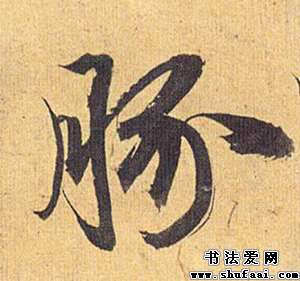 豚
书法爱网
www.shufaai.com